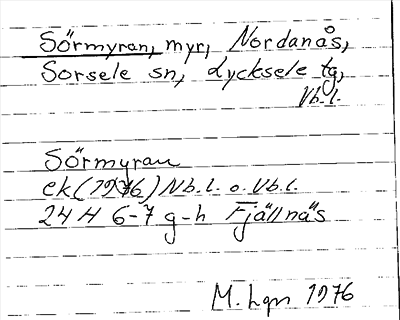 Sörmyran, myr, Nordanås,
Sorsele sn, Lycksele tg,
Vb.l.
Sörmyran
ek (1976) Nb.l. o. Vb.l.
24 H 6-7 g-h Fjällnäs
M. Lgn 1976